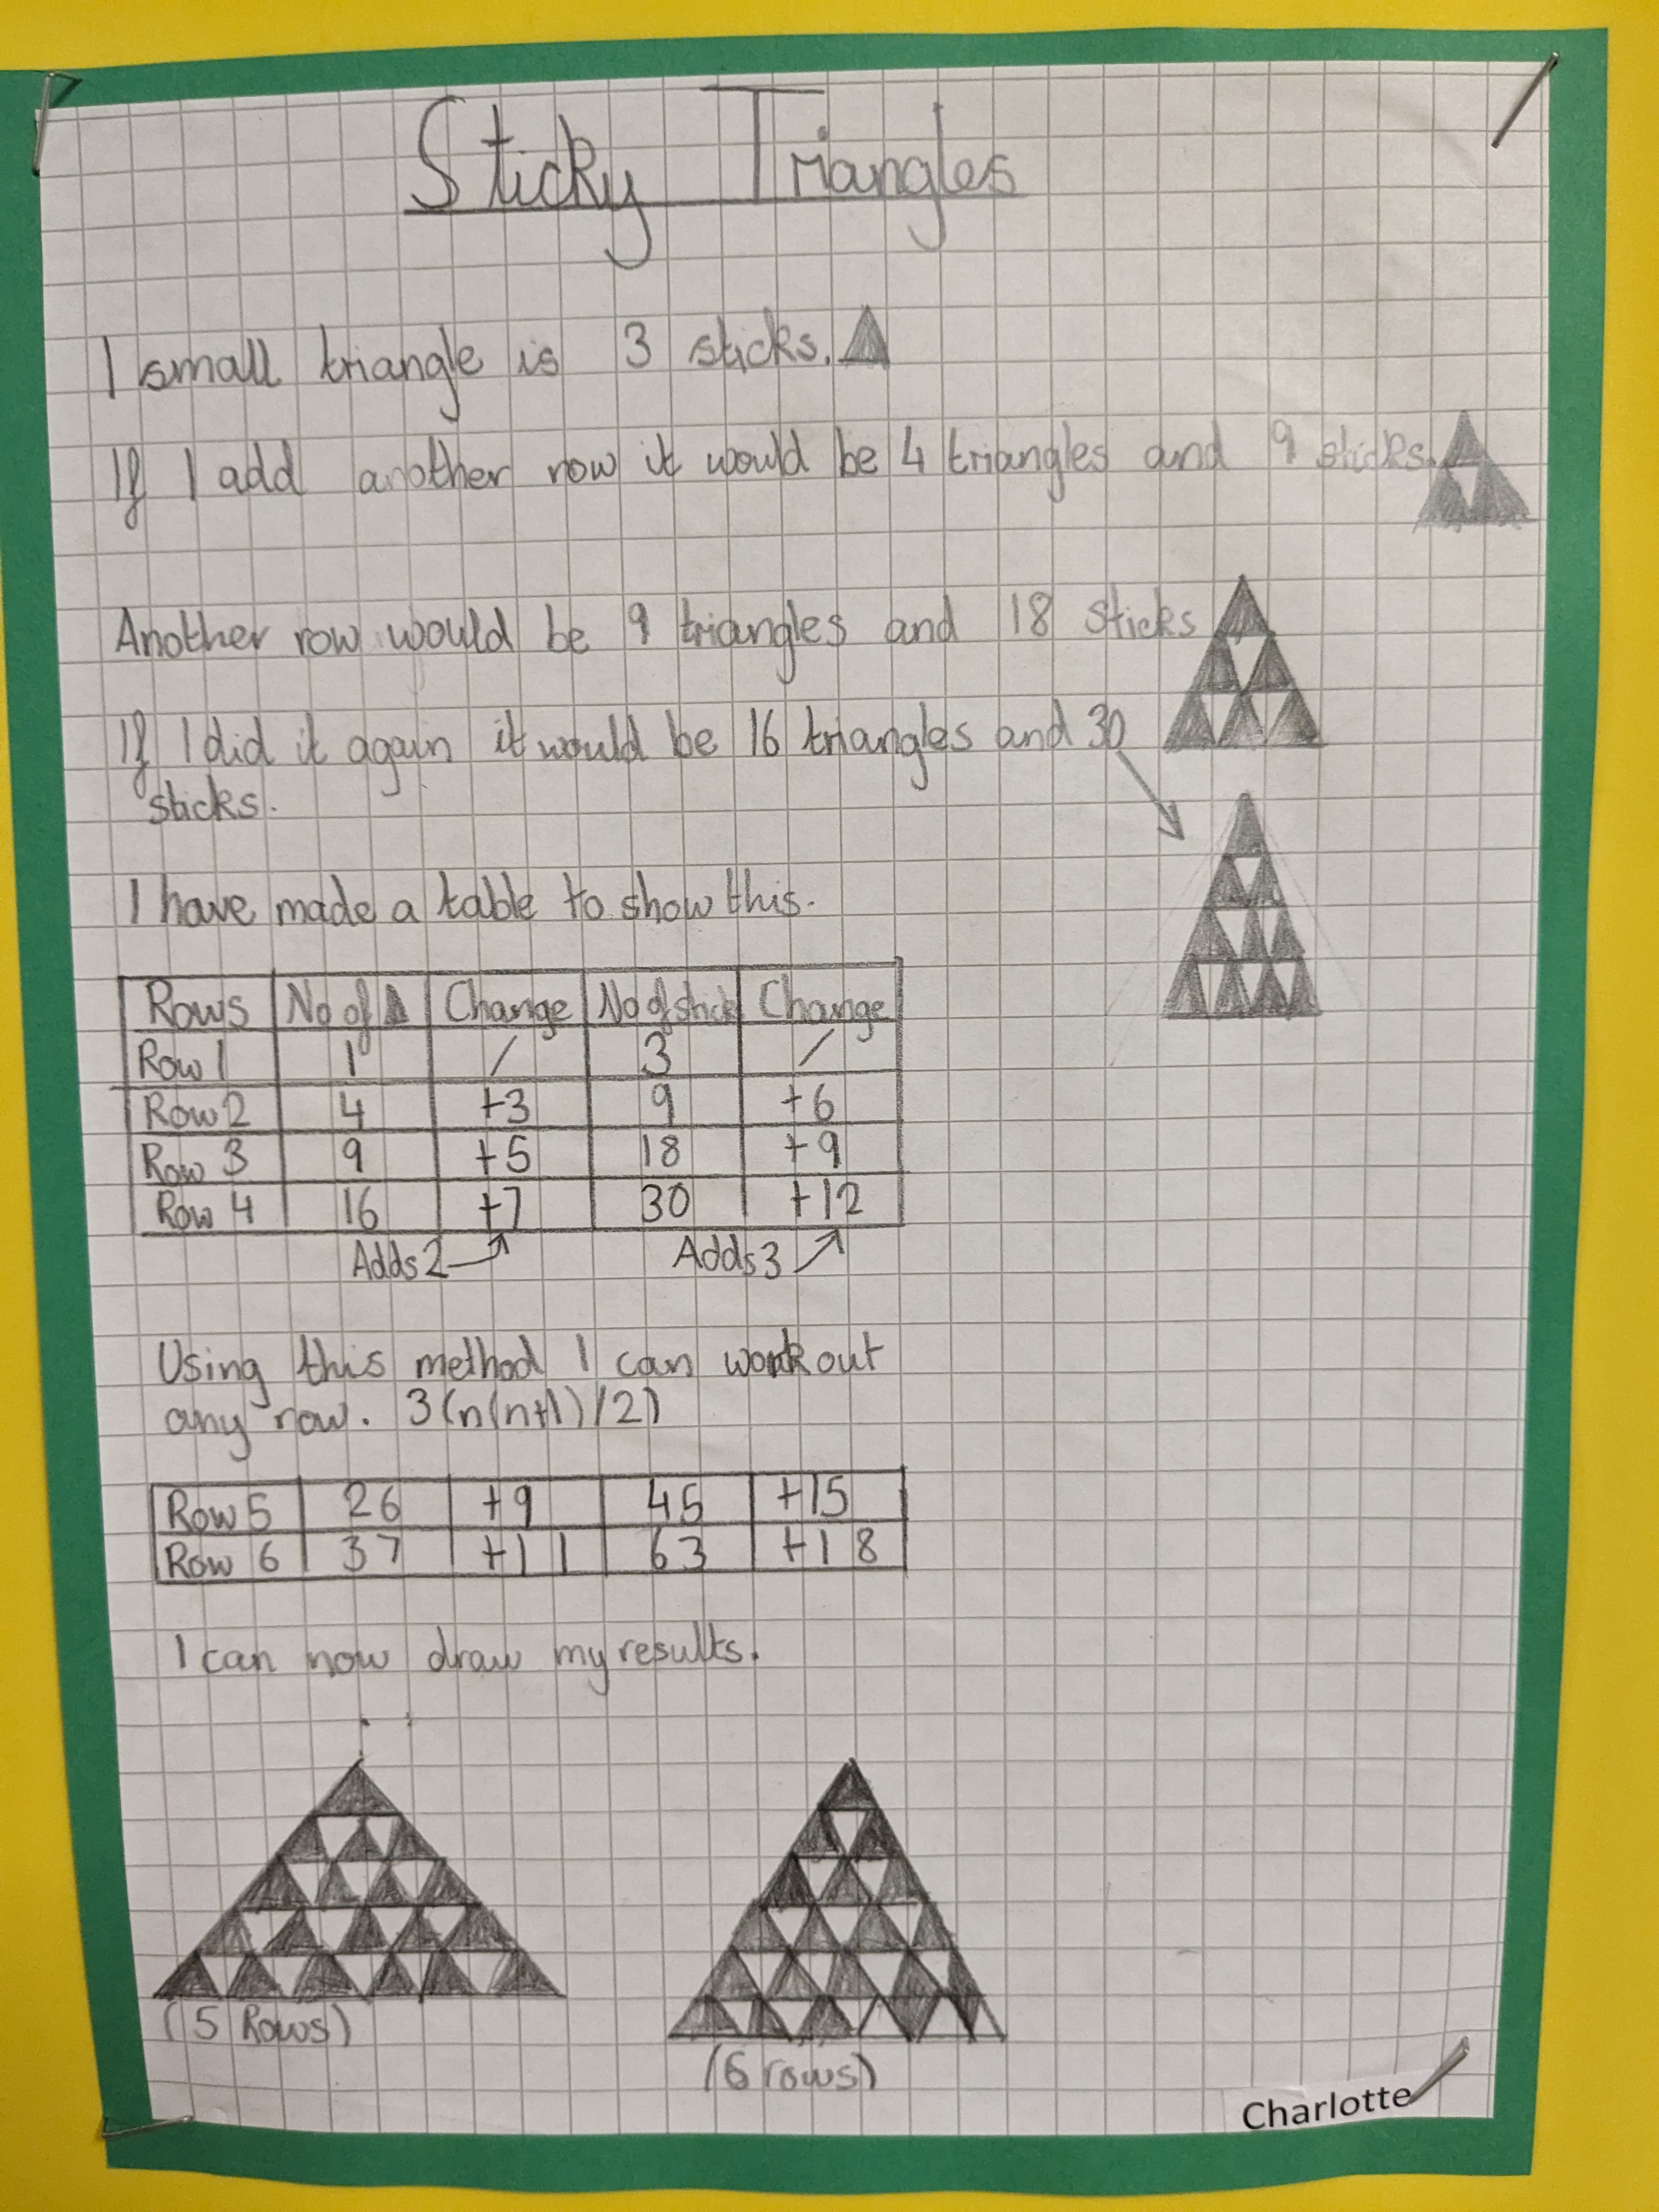 Sticky Triangles
1 small triangle is 3 sticks.
If I add another row it would be 4 triangles and 9 sticks.
Another row would be 9 triangles and 18 sticks
If I did it again it would be 16 triangles and 30
sticks.
I have made a table to show this.
Rows No of Change No of stick Change
Row 1 1 / 3 /
Row 2 4 +3 9 +6
Row 3 9 +5 18 +9
Row 4 16 +7 30 +12
Adds 2 Adds 3
Using this method I can work out
any row. 3(n(n+1)/2)
Row 5 26 +9 45 +15
Row 6 37 +11 63 +18
I can now draw my results.
(5 Rows)
(6 rows)
Charlotte